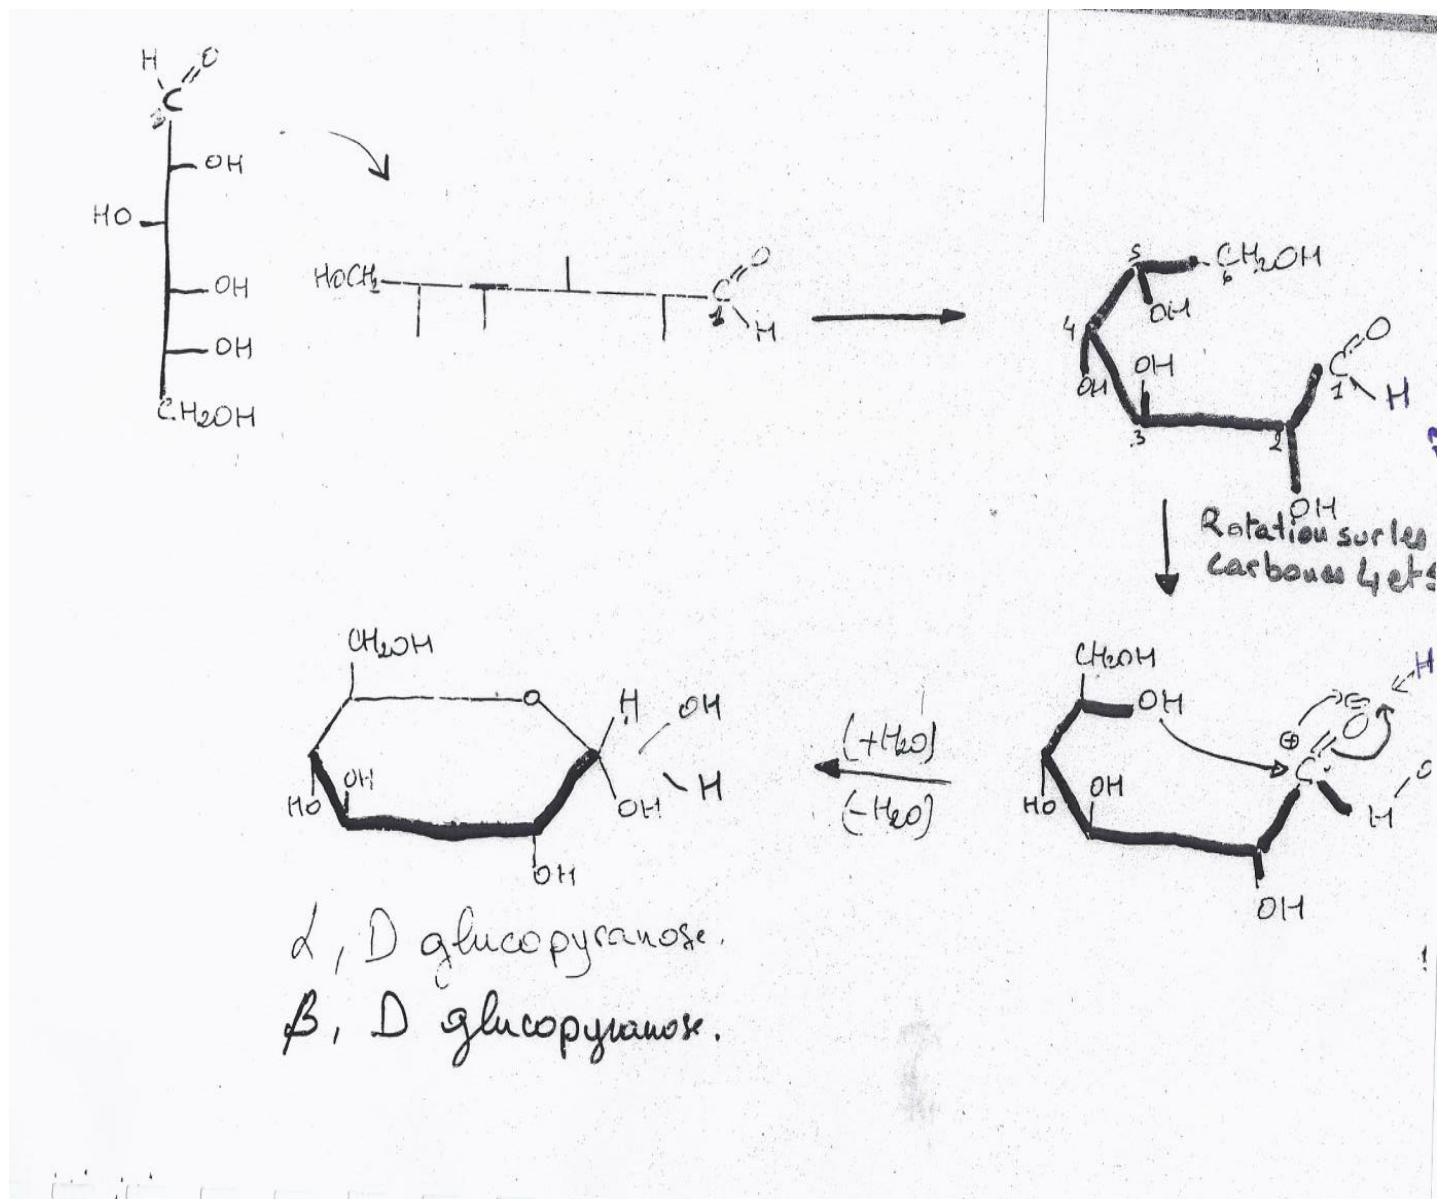 H O
C
OH
HO
OH
OH
CH2OH
HOCH2
C O
1
H
5
CH2OH
6
OH
4
OH
OH
O
C
1
H
3
2
OH
Rotation sur les
carbones 4 et 5
CH2OH
O
H
OH
H
OH
HO
OH
OH
(+H2O)
(-H2O)
CH2OH
OH
⊕
⊖
O
H
C
H
O
HO
OH
OH
α, D glucopyranose.
β, D glucopyranose.